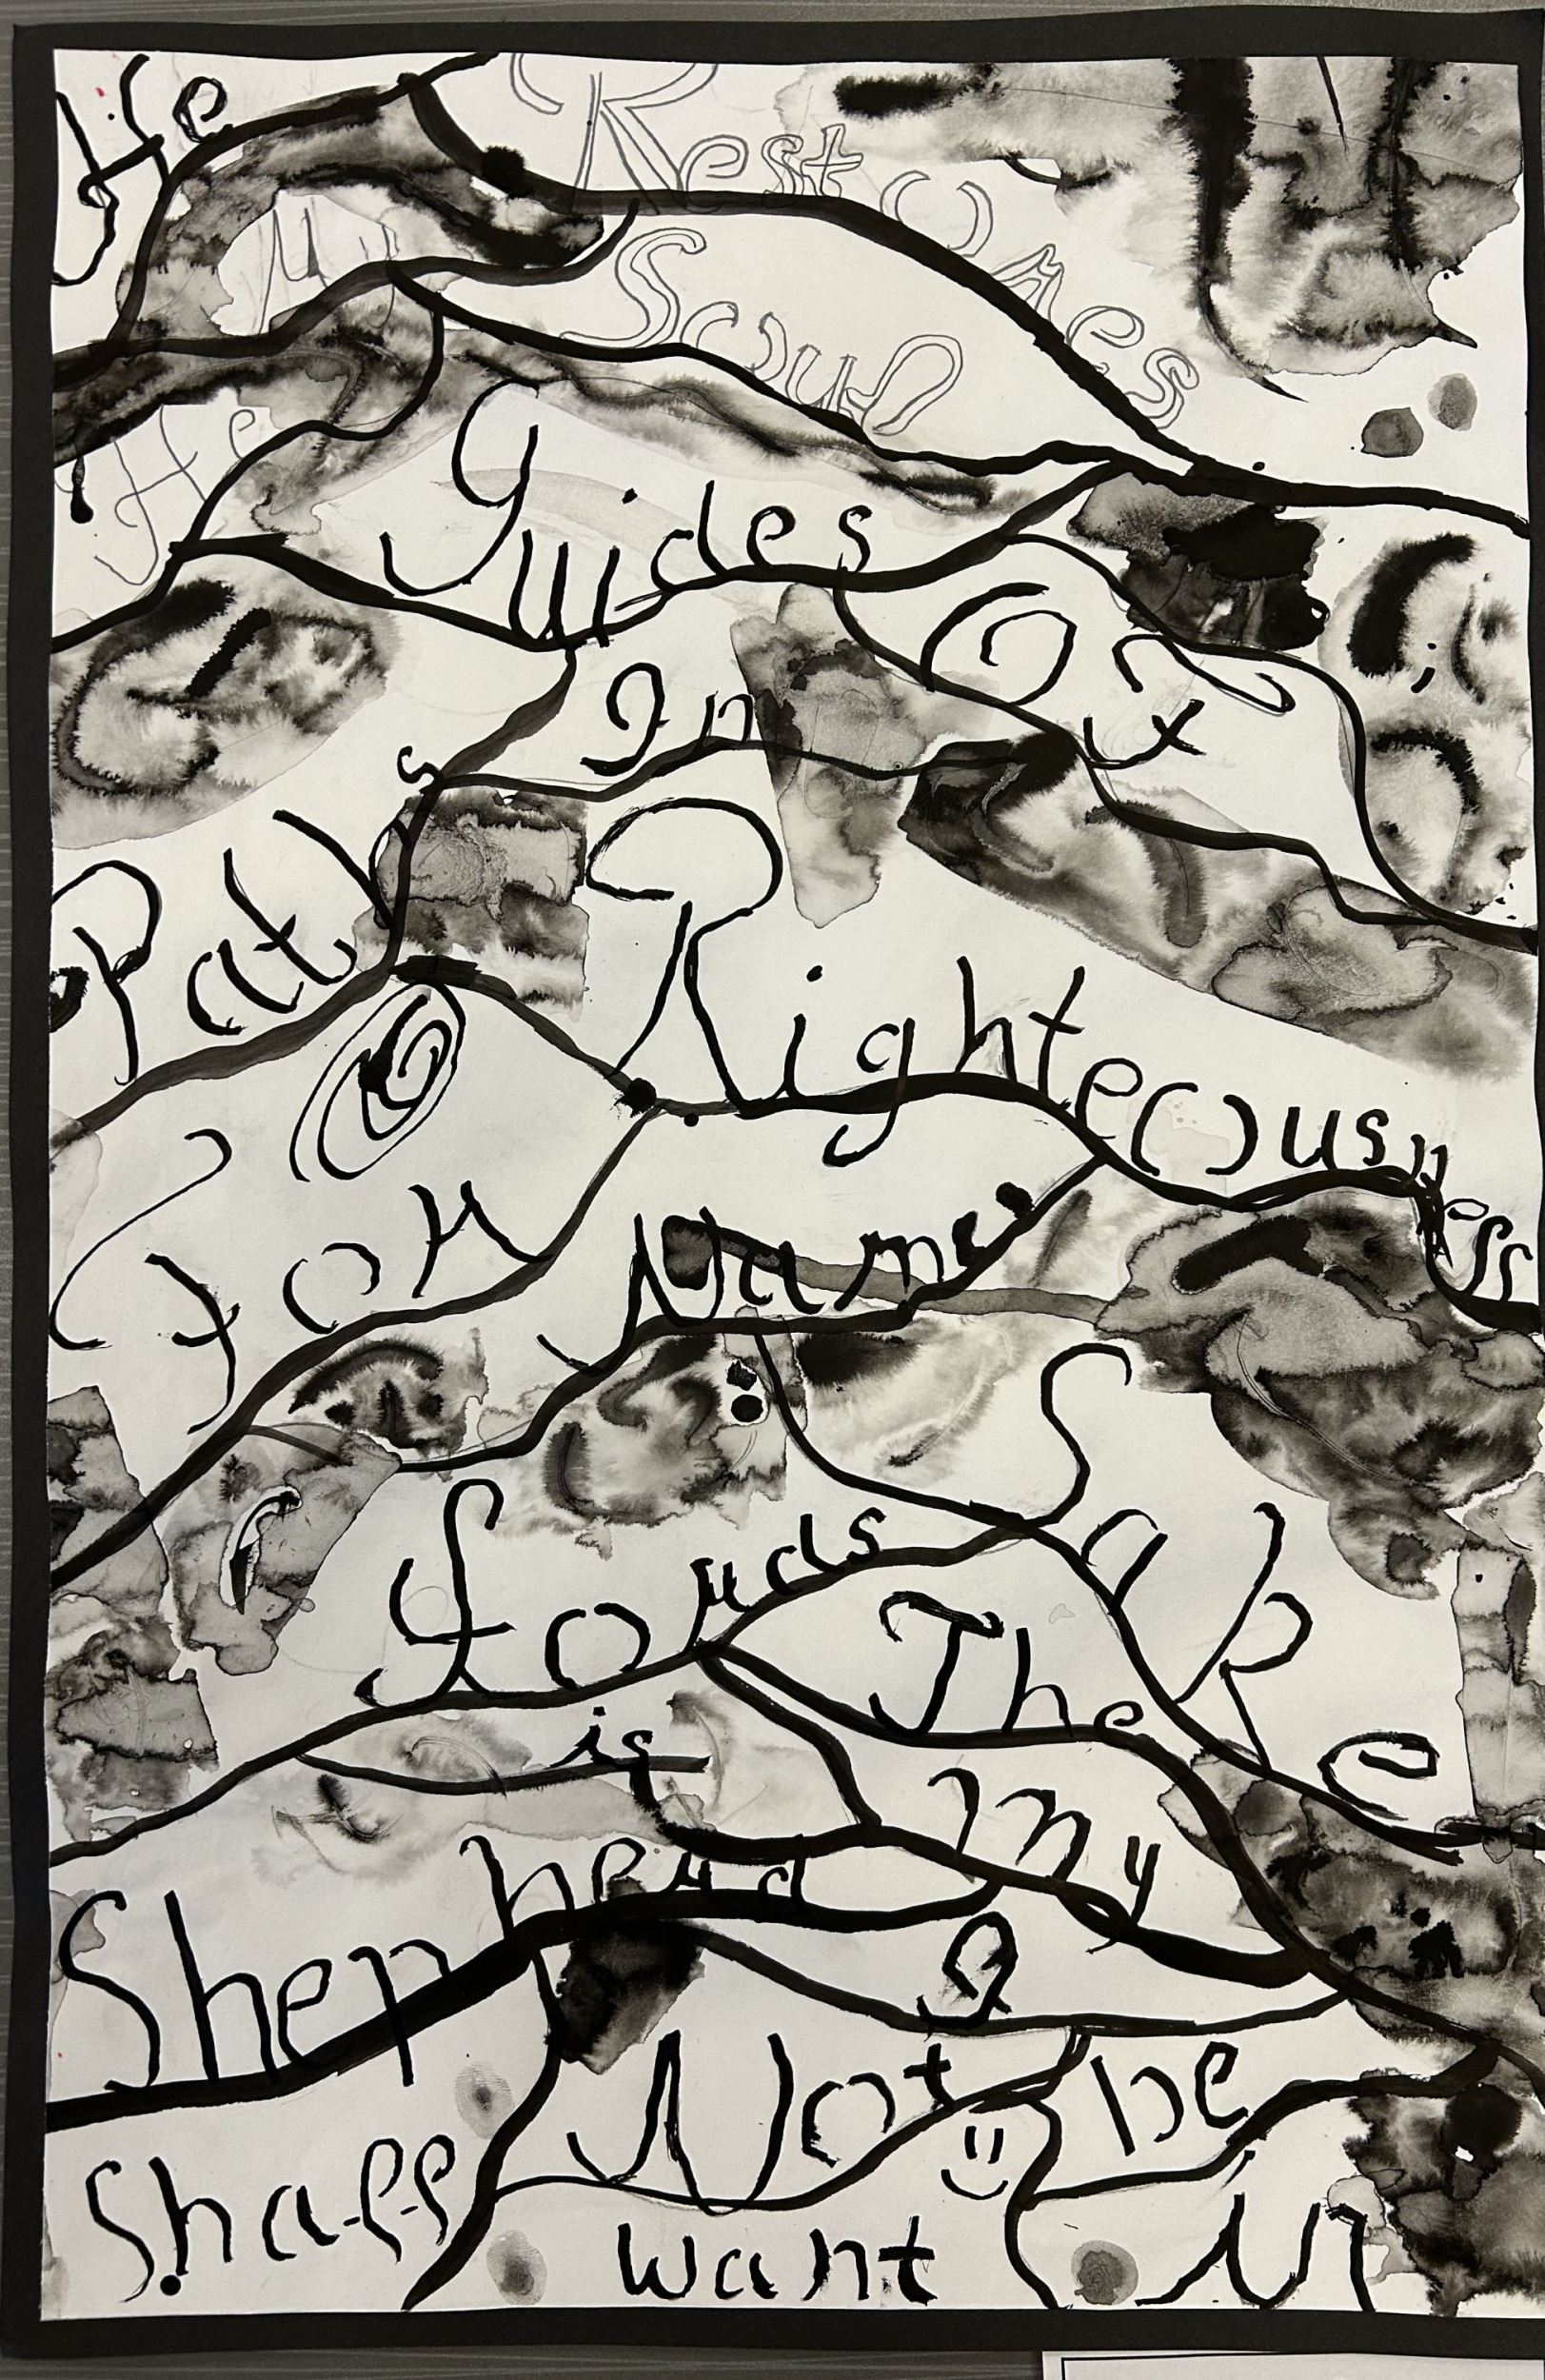 He Restores
My Soul
He Guides
In
Paths Of
Righteousness
For
Name's
Sake
Lords The
is My
Shepherd
I
Shall Not be
In
want